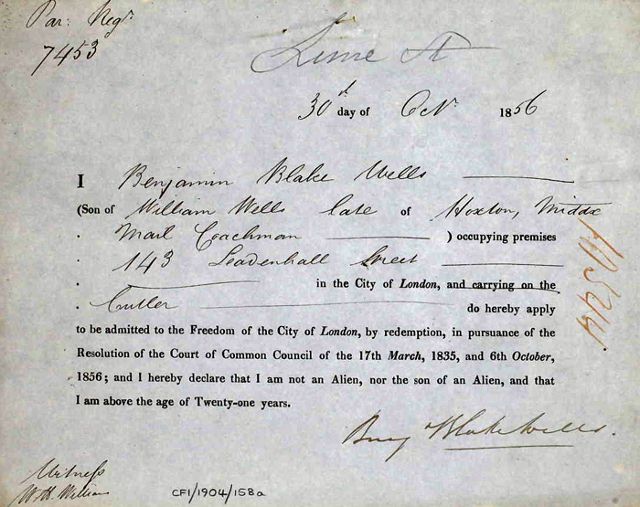 Par: Regr
7453
Lime St
30th day of Octr 1856
I Benjamin Blake Wells
(Son of William Wells late of Hoxton, Middx
Mail Coachman ) occupying premises
143 Leadenhall Street
in the City of London, and carrying on the
Cutler do hereby apply
to be admitted to the Freedom of the City of London, by redemption, in pursuance of the
Resolution of the Court of Common Council of the 17th March, 1835, and 6th October,
1856; and I hereby declare that I am not an Alien, nor the son of an Alien, and that
I am above the age of Twenty-one years.
Benj Blake Wells.
Witness
W.H. Williams
CF1/1904/158a